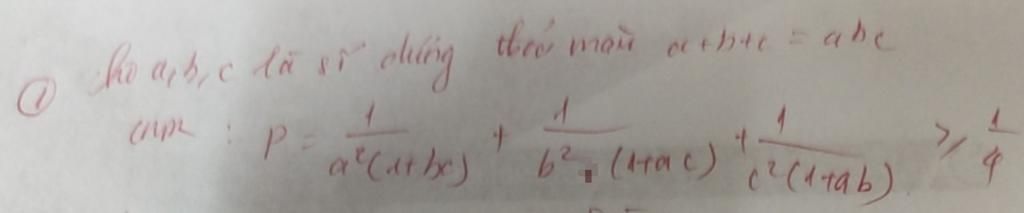 ① Cho a, b, c là số dương thỏa mãn a+b+c = abc
cmr : P = 1/a²(1+bc) + 1/b².(1+ac) + 1/c²(1+ab) ≥ 1/4